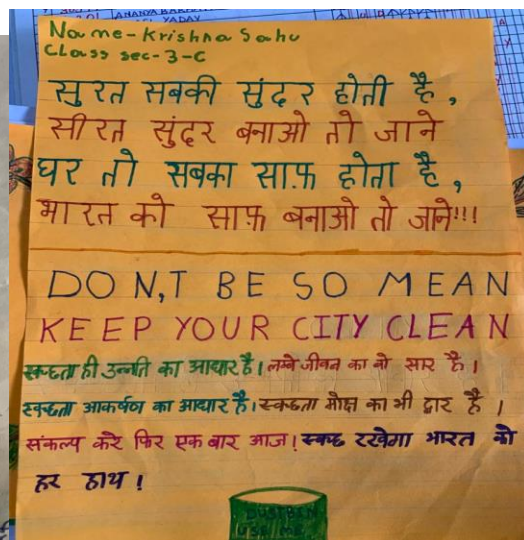 ANANYA
YADAV
Name-Krishna Sahu
Class sec-3-C
सुरत सबकी सुंदर होती है,
सीरत सुंदर बनाओ तो जाने
घर तो सबका साफ़ होता है,
भारत को साफ़ बनाओ तो जाने!!!
DON,T BE SO MEAN
KEEP YOUR CITY CLEAN
स्वच्छता ही उन्नति का आधार है। लम्बे जीवन का वो सार है।
स्वच्छता आकर्षण का आधार है। स्वच्छता मोक्ष का भी द्वार है।
संकल्प करे फिर एक बार आज! स्वच्छ रखेगा भारत को
हर हाथ!
DUSTBIN
USE ME